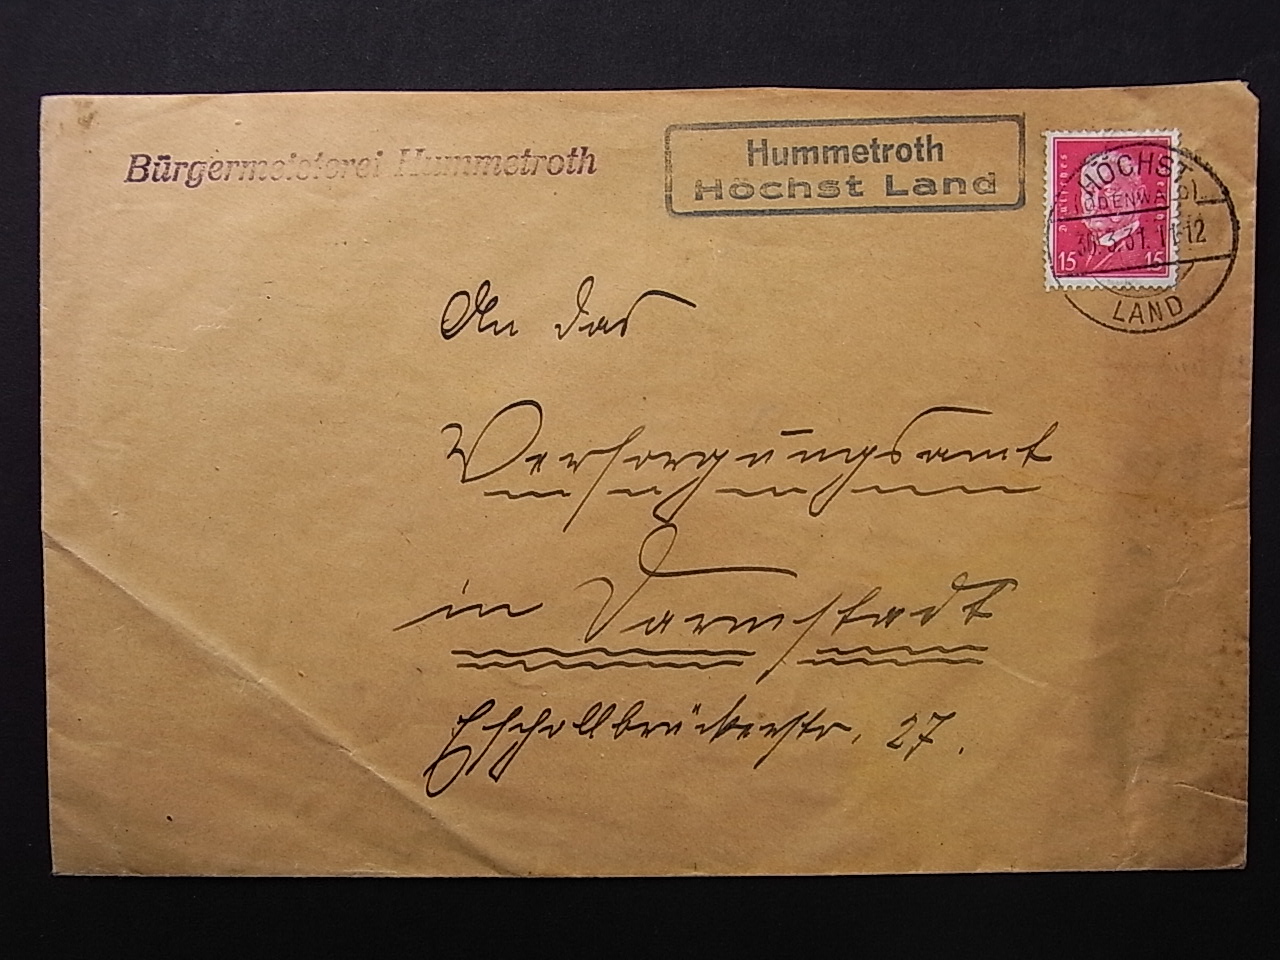 Bürgermeisterei Hummetroth
Hummetroth
Höchst Land
Deutsches Reich
15 15
HÖCHST
(ODENWALD)
30.3.31. 11-12
LAND
An das
Versorgungsamt
in Darmstadt
Eschollbrückerstr. 27.